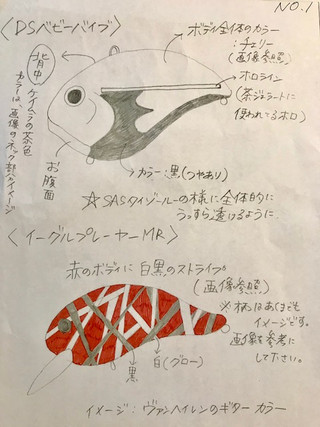 NO.1
〈DSベビーバイブ〉
ボディ全体のカラー
:チェリー
(画像参照)
ホロライン
(茶ジェラートに
使われてるホロ)
背中
ケイムラの茶色
カラーは、画像のネック部分がイメージ
お腹面
カラー:黒(つやあり)
☆SASタイゾールーの様に全体的に
うっすら透けるように
〈イーグルプレーヤーMR〉
赤のボディに白黒のストライプ
(画像参照)
※柄はあくまでも
イメージです。
画像を参考に
して下さい。
白(グロー)
黒
イメージ:ヴァンヘイレンのギターカラー